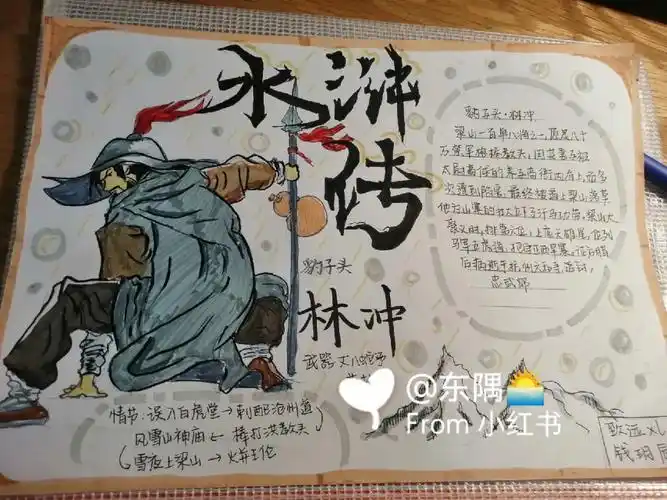 水浒
传
豹子头
林冲
武器:丈八蛇矛
豹子头·林冲
梁山一百单八将之一,原是八十
万禁军枪棒教头,因其妻子被
太尉高俅的养子高衙内看上,而多
次遭到陷害,最终被逼上梁山落草
他为山寨的壮大立下汗马功劳,梁山大
聚义时,排第六位,上应天雄星,位列
马军五虎将,把守正西旱寨,征方腊
后病逝
忠武郎
情节:误入白虎堂→刺配沧州道
风雪山神庙←棒打洪教头
雪夜上梁山→火并王伦
@东隅
From 小红书